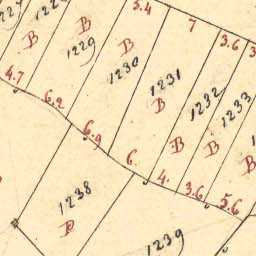 3.4
7
3.6
B
1229
B
1230
B
1231
B
1232
B
1233
B
B
4.7
6.2
6.9
6.
4.
3.6
5.6
1238
1239